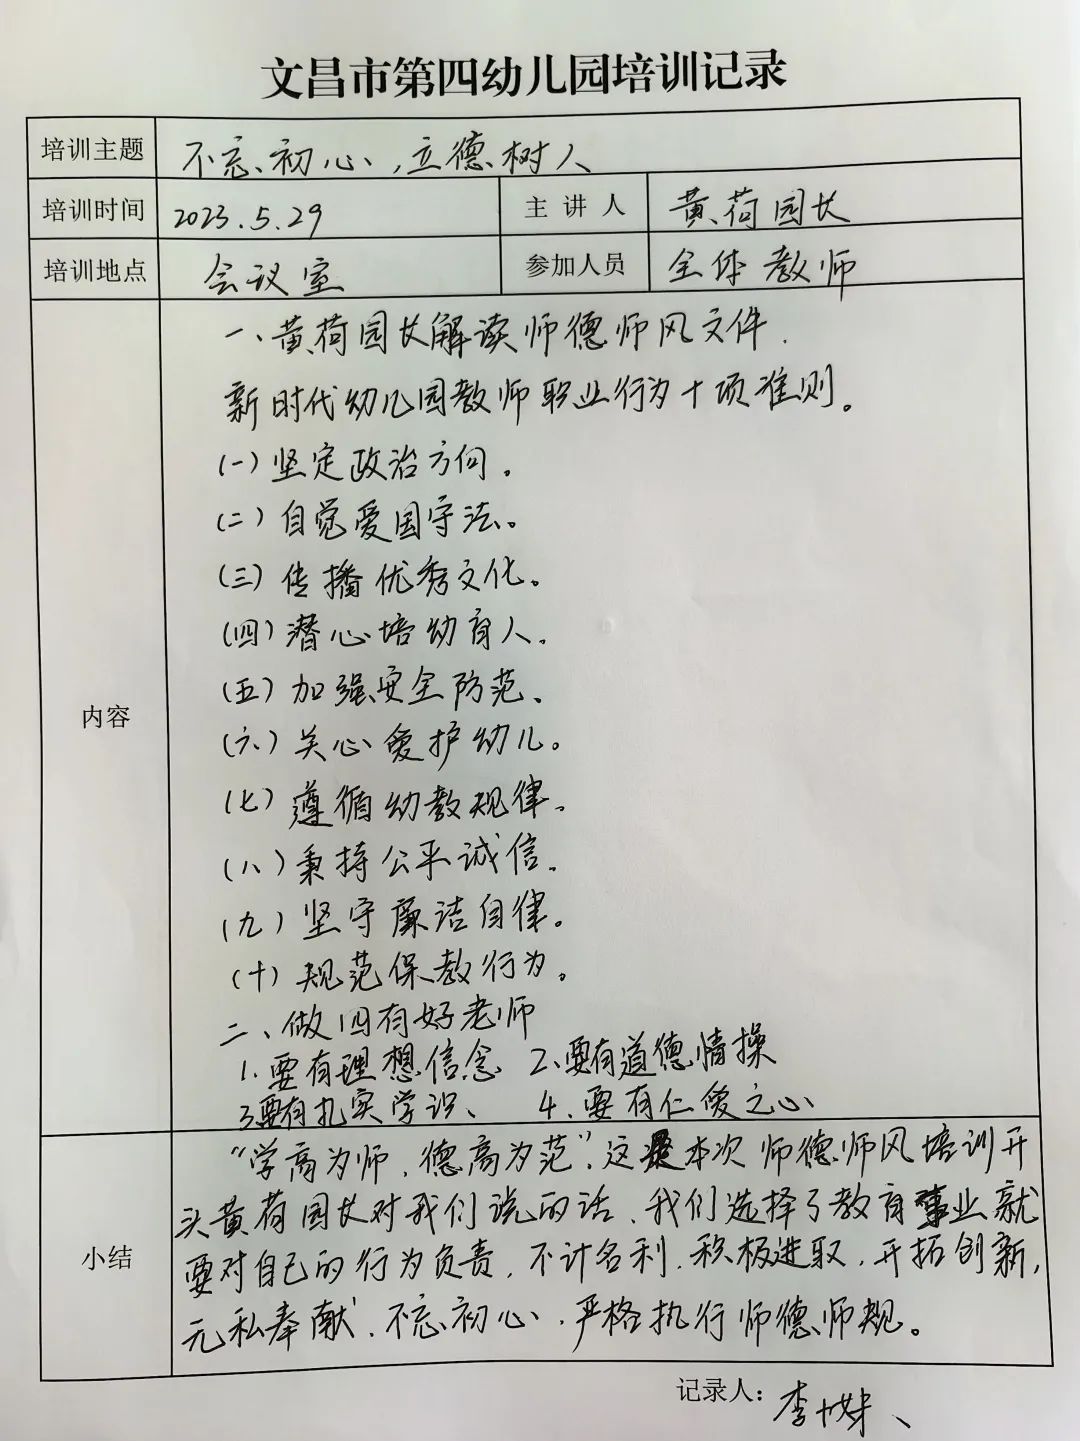 文昌市第四幼儿园培训记录
培训主题 不忘初心，立德树人
培训时间 2023.5.29 主讲人 黄荷园长
培训地点 会议室 参加人员 全体教师
内容
一、黄荷园长解读师德师风文件.
新时代幼儿园教师职业行为十项准则。
(一)坚定政治方向。
(二)自觉爱国守法。
(三)传播优秀文化。
(四)潜心培幼育人、
(五)加强安全防范、
(六)关心爱护幼儿。
(七)遵循幼教规律、
(八)秉持公平诚信、
(九)坚守廉洁自律。
(十)规范保教行为。
二、做四有好老师
1.要有理想信念 2、要有道德情操
3要有扎实学识、 4、要有仁爱之心
小结
“学高为师，德高为范”，这是本次师德师风培训开
头黄荷园长对我们说的话、我们选择了教育事业就
要对自己的行为负责，不计名利，积极进取，开拓创新，
无私奉献、不忘初心，严格执行师德师规。
记录人：李